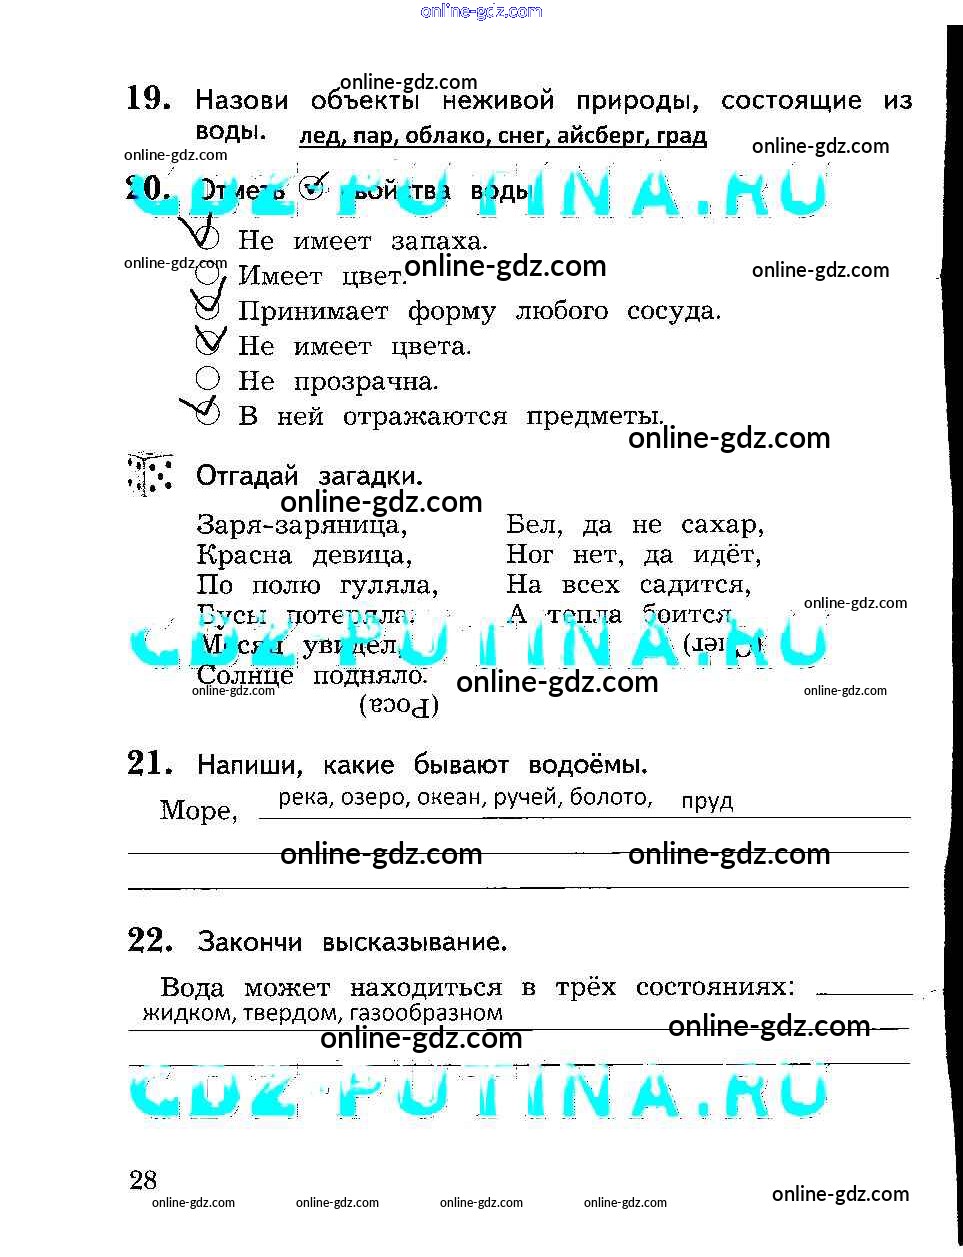 online-gdz.com
online-gdz.com
19. Назови объекты неживой природы, состоящие из
воды. лед, пар, облако, снег, айсберг, град
online-gdz.com
online-gdz.com
20. Отметь свойства воды
GDZ-PUTINA.RU
Не имеет запаха.
online-gdz.com
Имеет цвет.
online-gdz.com
online-gdz.com
Принимает форму любого сосуда.
Не имеет цвета.
Не прозрачна.
В ней отражаются предметы.
online-gdz.com
Отгадай загадки.
online-gdz.com
Заря-заряница,
Красна девица,
По полю гуляла,
Бусы потеряла.
Месяц увидел,
Солнце подняло.
(Роса)
Бел, да не сахар,
Ног нет, да идёт,
На всех садится,
А тепла боится
(Снег)
online-gdz.com
GDZ-PUTINA.RU
online-gdz.com
online-gdz.com
online-gdz.com
21. Напиши, какие бывают водоёмы.
Море, река, озеро, океан, ручей, болото, пруд
online-gdz.com
online-gdz.com
22. Закончи высказывание.
Вода может находиться в трёх состояниях:
жидком, твердом, газообразном
online-gdz.com
online-gdz.com
GDZ-PUTINA.RU
28
online-gdz.com
online-gdz.com
online-gdz.com
online-gdz.com
online-gdz.com